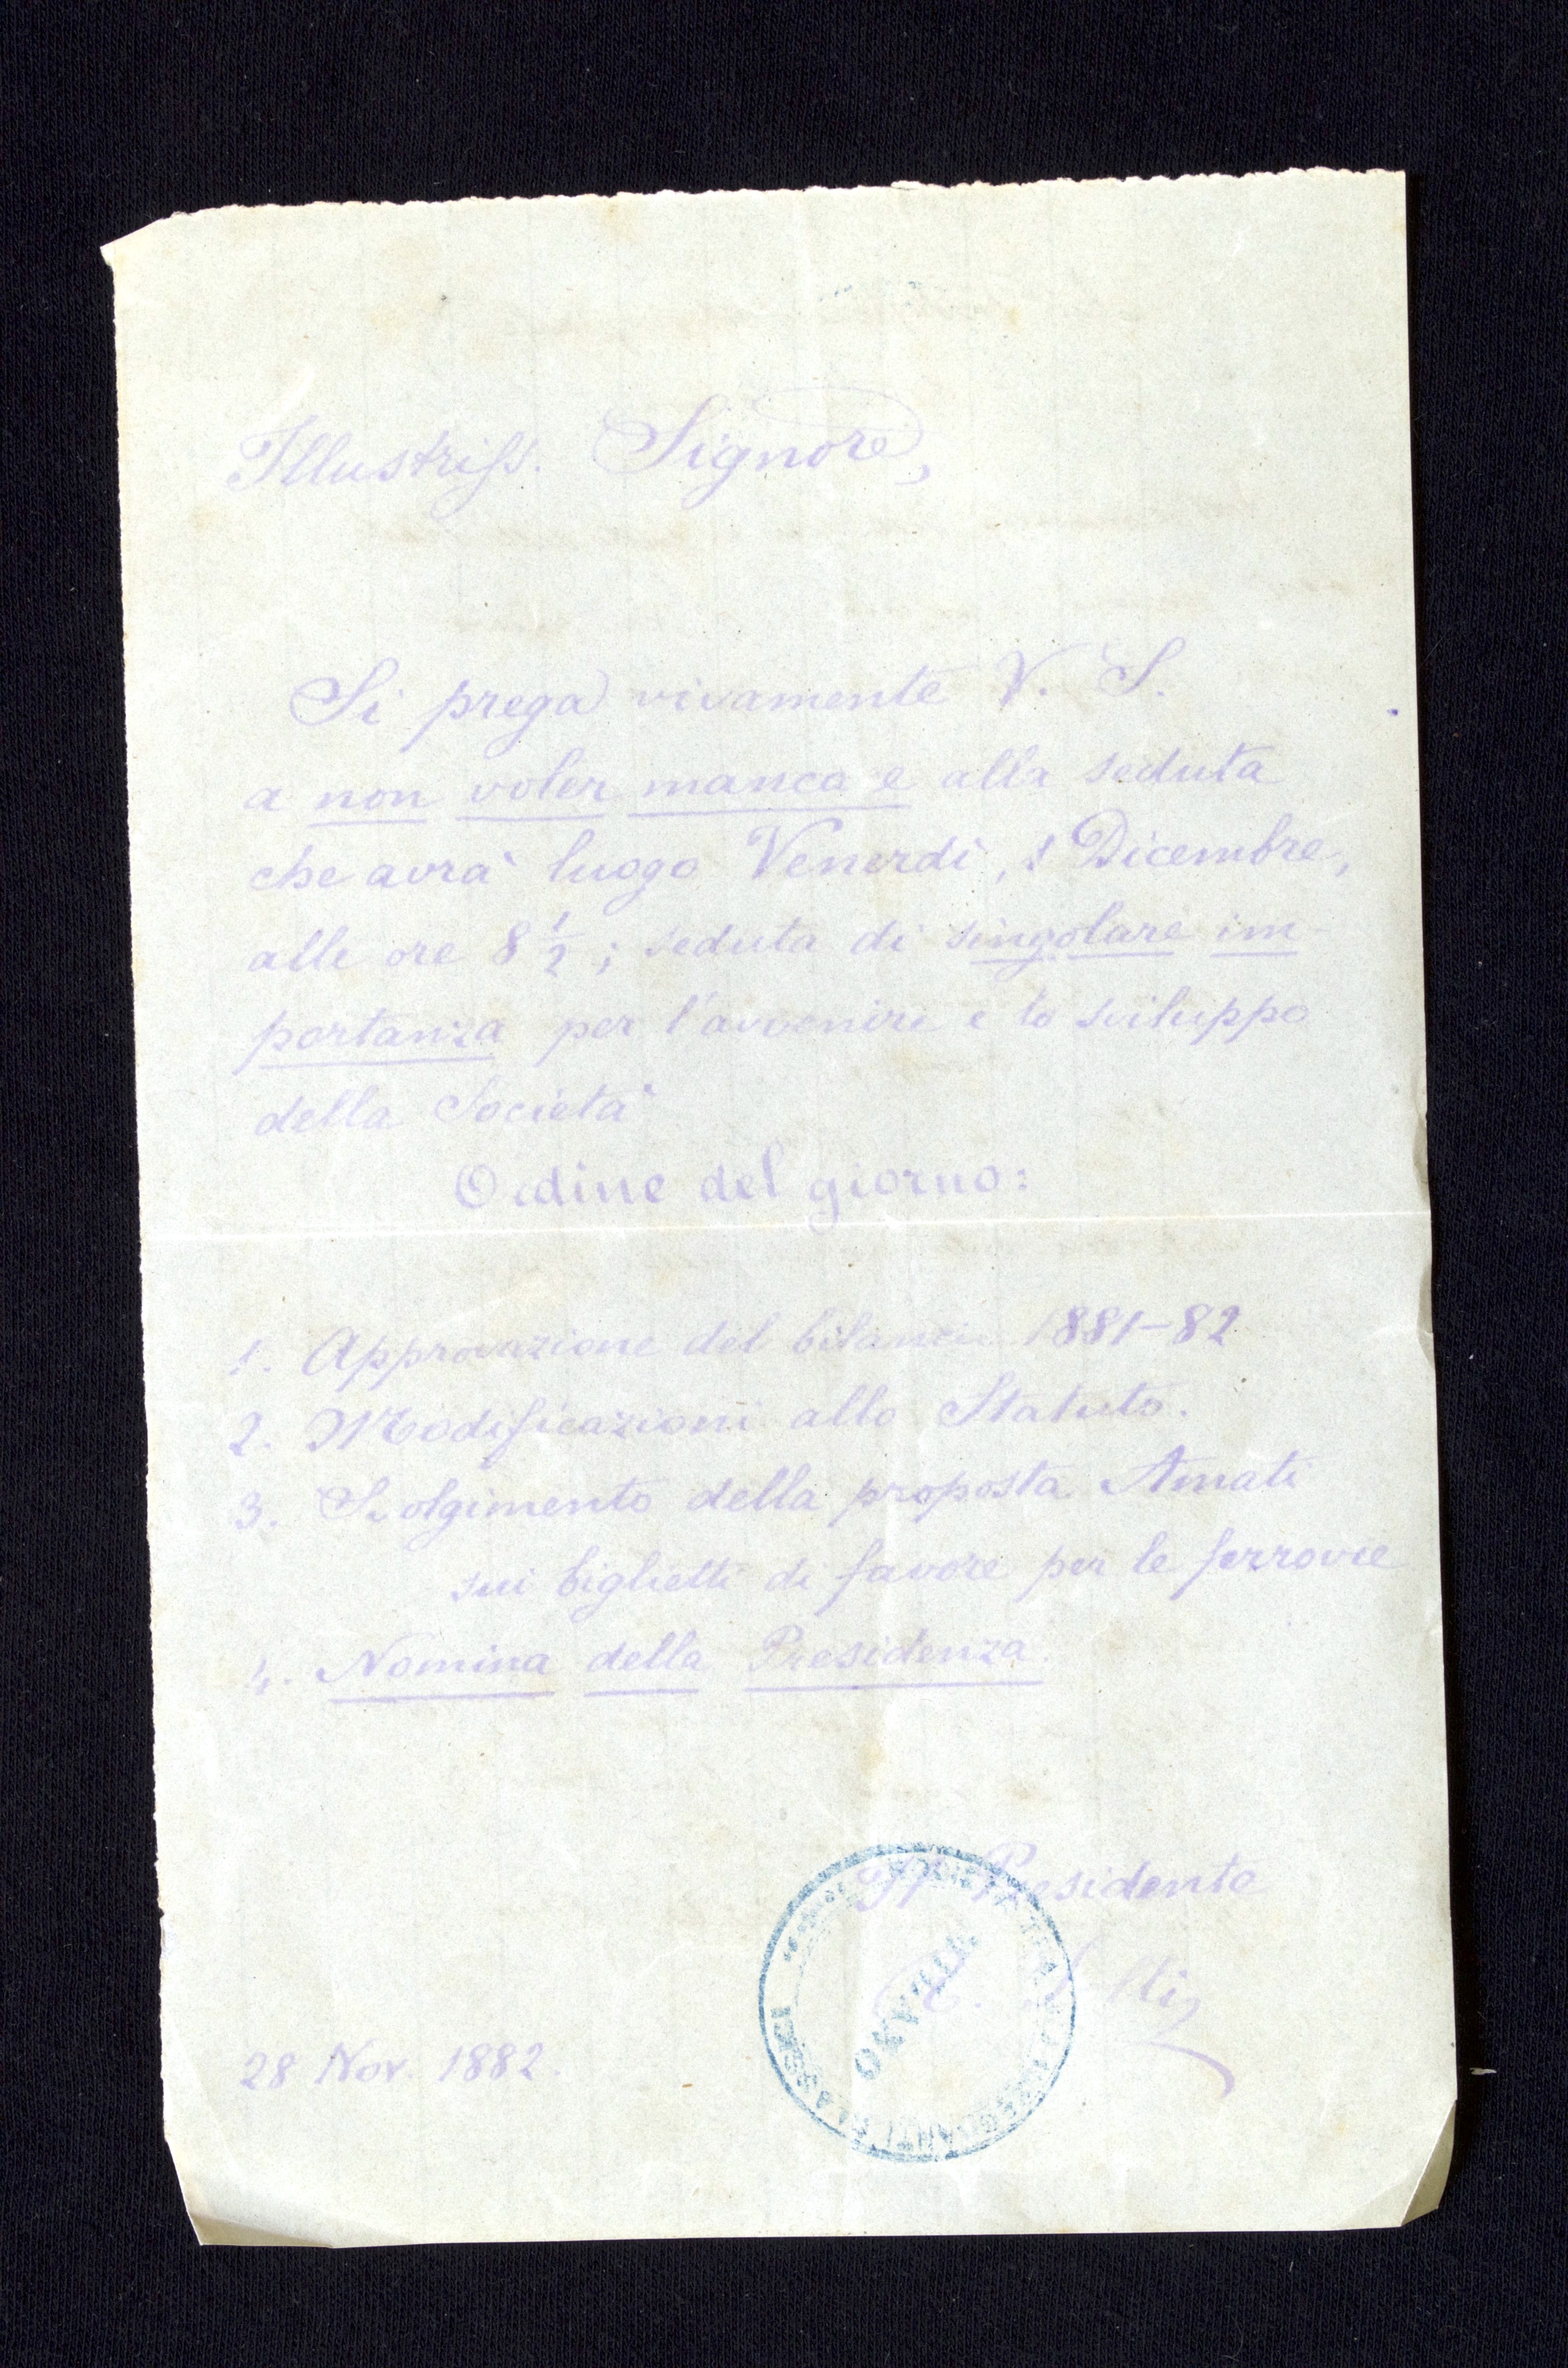 Illustriss. Signore,
Si prega vivamente V. S.
a non voler mancare alla seduta
che avrà luogo Venerdì, 1 Dicembre,
alle ore 8 1/2; seduta di singolare im-
portanza per l'avvenire e lo sviluppo
della Società
Ordine del giorno:
1. Approvazione del bilancio 1881-82
2. Modificazioni allo Statuto.
3. Svolgimento della proposta Amati
sui biglietti di favore per le ferrovie
4. Nomina della Presidenza.
Il Presidente
28 Nov. 1882.
SOCIETÀ INSEGNANTI CLASSICI
MILANO